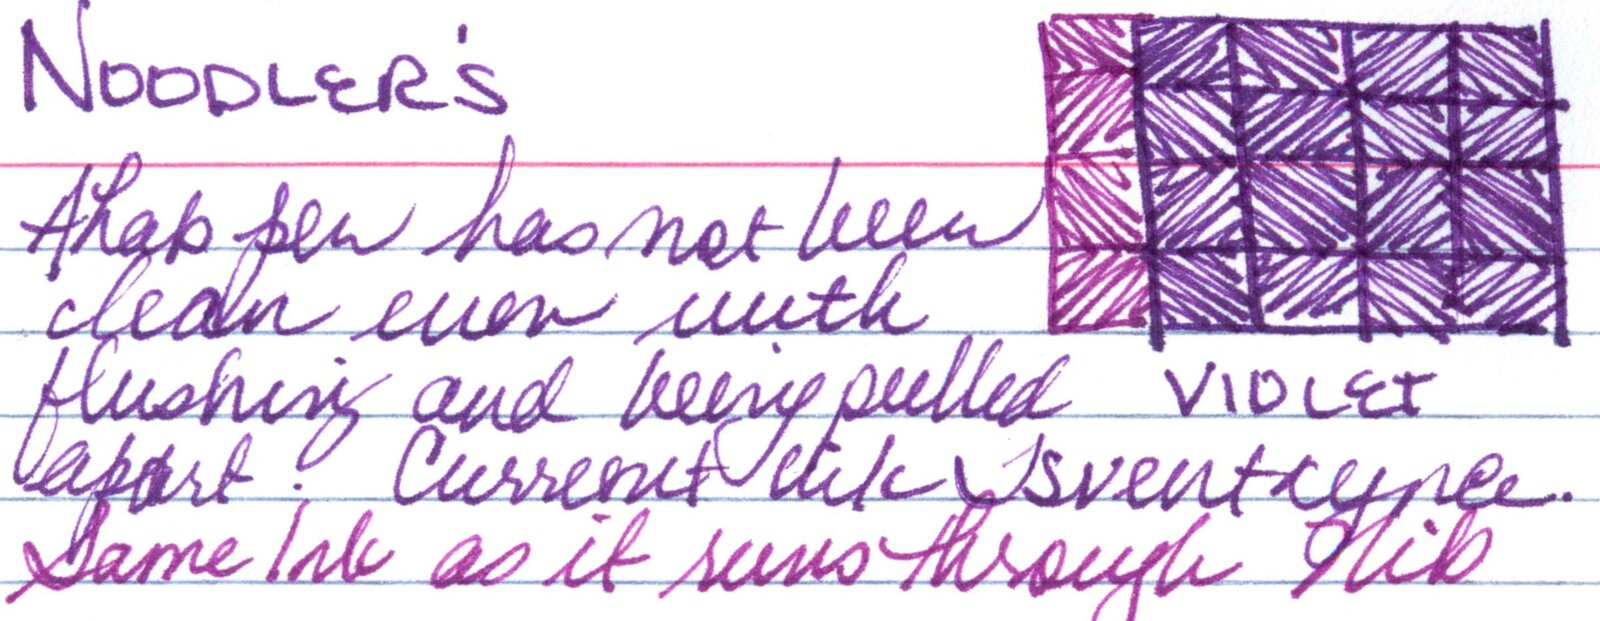 NOODLER'S
Ahab pen has not been
clean even with
flushing and being pulled
VIOLET
apart. Current ink is
Same Ink as it runs through Nib